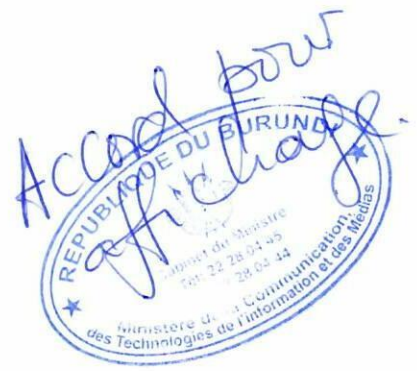 Accord pour
affichage.
REPUBLIQUE DU BURUNDI
Cabinet du Ministre
Tél: 22 28 04 45
28 04 44
Ministère de la Communication,
des Technologies de l'Information et des Médias